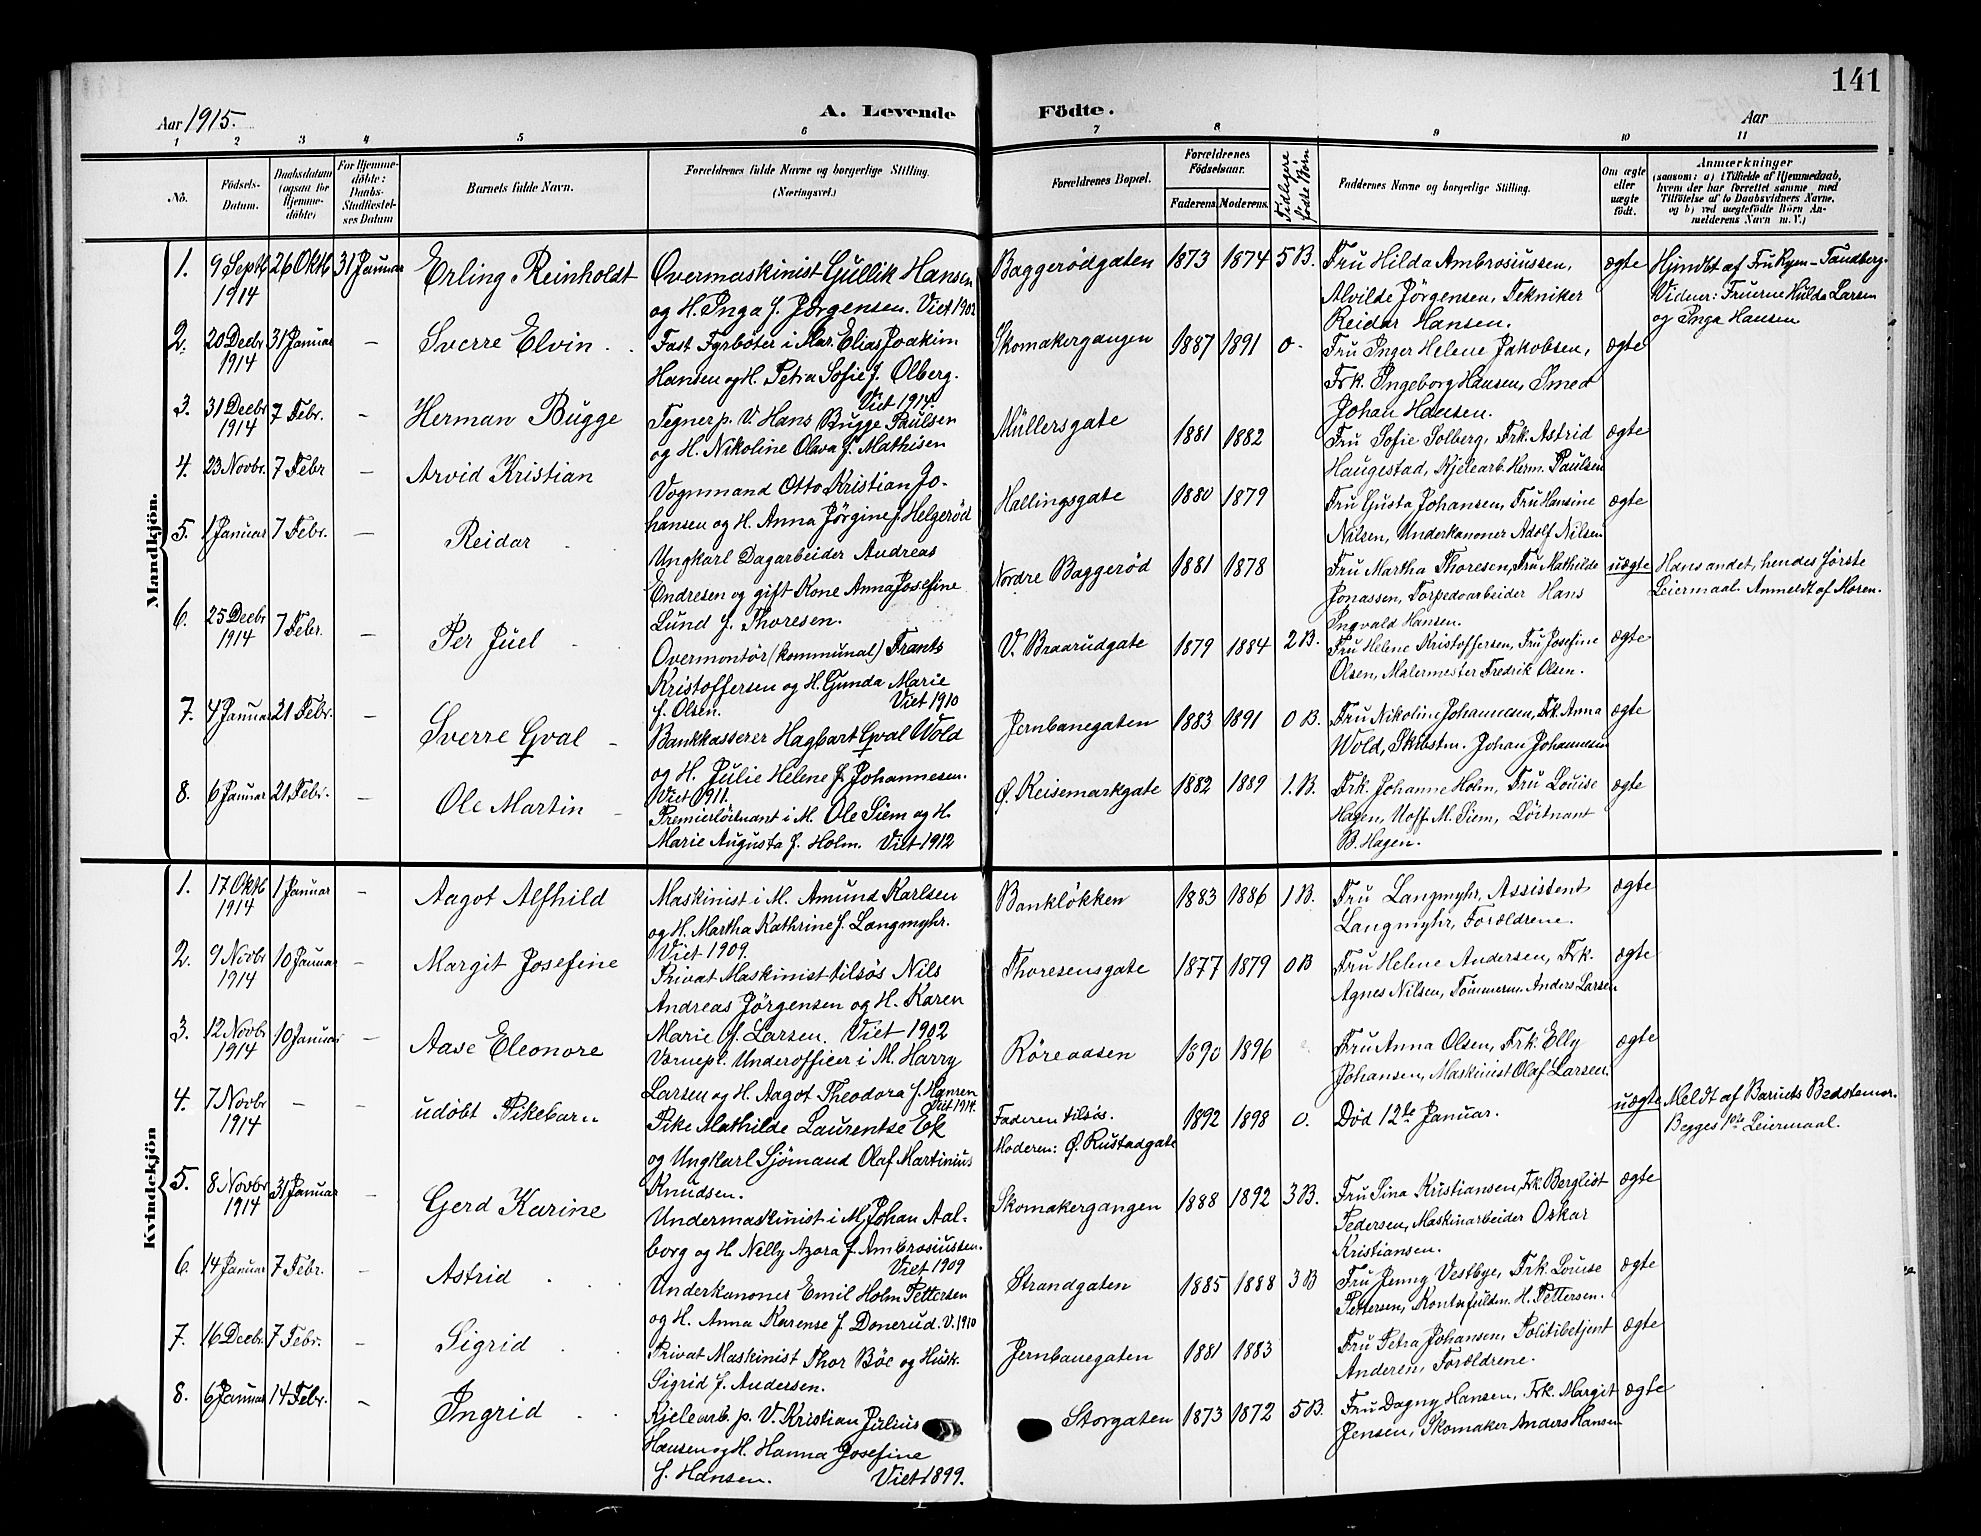 141
Aar 1915. A. Levende Födte. Aar
1 2 3 4 5 6 7 8 9 10 11
No. Födsels-Datum. Daabsdatum (ogsaa for Hjemme-döbte) For Hjemme-döbte: Daabs-Stadfæstel-ses Datum Barnets fulde Navn. Forældrenes fulde Navne og borgerlige Stilling. (Næringsvei.) Forældrenes Bopæl. Forældrenes Födselsaar. Faderens. Moderens. Tidligere fødte Börn Faddernes Navne og borgerlige Stilling. Om ægte eller uægte födt. Anmærkninger (saasom: a) i Tilfælde af Hjemmedaab, hvem der har forrettet samme med Tilföielse af to Daabsvidners Navne, og b) ved uægtefödte Börn An-melderens Navn m. V.)
Mandkjön.
1. 9 Septb 1914 26 Oktb 31 Januar Erling Reinholdt Overmaskinist Gullik Hansen Baggerödgaten 1873 1874 5 B. Fru Hilda Ambrosiussen, ægte Hjmdbt af Fru Kyen-Tandberg.
og H. Inga f. Jørgensen. Viet 1902 Alvilde Jörgensen, Tekniker Vidner: Fruerne Hulda Larsen
Reidar Hansen. og Inga Hansen
2. 20 Decbr 1914 31 Januar – Sverre Elvin Fast Fyrböter i Mar. Elias Joakim Skomakergangen 1887 1891 0 Fru Inger Helene Jakobsen, ægte
Hansen og H. Petra Sofie f. Olberg. Frk. Ingeborg Hansen, Smed
Viet 1914. Johan Hansen.
3. 31 Decbr 1914 7 Febr. – Herman Bugge Tegner p. V. Hans Bugge Paulsen Müllersgate 1881 1882 Fru Sofie Solberg, Frk. Astrid ægte
og H. Nikoline Olava f. Mathisen Haugestad, Kjelearb. Herm. Paulsen
4. 23 Novbr. 7 Febr – Arvid Kristian Vognmand Otto Kristian Jo- Hallingsgate 1880 1879 Fru Gusta Johansen, Fru Hansine ægte
hansen og H. Anna Jörgine f. Helgeröd Nilsen, Underkanoner Adolf Nilsen
5. 1 Januar 7 Febr. – Reidar Ungkarl Dagarbeider Andreas Nordre Baggeröd 1881 1878 Fru Martha Thoresen, Fru Mathilde uægte Hans andet, hendes første
Endresen og gift Kone Anna Josefine Jonassen, Torpedoarbeider Hans Leiermaal. Anmeldt af Moren.
Lund f. Thoresen. Ingvald Hansen.
6. 25 Decbr 1914 7 Febr. – Per Juel Overmontör (kommunal) Frants V. Braarudgate 1879 1884 2 B. Fru Helene Kristoffersen, Fru Josefine ægte
Kristoffersen og H. Gunda Marie Olsen, Malermester Fredrik Olsen.
f. Olsen. Viet 1910
7. 4 Januar 21 Febr. – Sverre Qval Bankkasserer Hagbart Qval Wold Jernbanegaten 1883 1891 0 B. Fru Nikoline Johannesen, Frk. Anna ægte
og H. Julie Helene f. Johannesen. Wold, Skibstm. Johan Johannesen
Viet 1911.
8. 6 Januar 21. Febr. – Ole Martin Premierlöitnant i M. Ole Siem og H. Ø. Keisemarkgate 1882 1889 1. B. Frk. Johanne Holm, Fru Louise ægte
Marie Augusta f. Holm. Viet 1912 Hagen, Uoff. M. Siem, Löitnant
B. Hagen.
Kvindekjön
1. 17 Oktb 1914 1 Januar – Aagot Alfhild Maskinist i M. Amund Karlsen Bankløkken 1883 1886 1 B. Fru Langmyhr, Assistent ægte
og H. Martha Kathrine f. Langmyhr. Langmyhr, Forældrene.
Viet 1909.
2. 9 Novbr 1914 10 Januar – Margit Josefine Privat Maskinist tilsøs Nils Thoresensgate 1877 1879 0 B Fru Helene Andersen, Frk. ægte
Andreas Jörgensen og H. Karen Agnes Nilsen, Tömmerm. Anders Larsen
Marie f. Larsen. Viet 1902
3. 12 Novbr 1914 10 Januar – Aase Eleonore Vernepl. Underofficer i M. Harry Röreaasen 1890 1896 Fru Anna Olsen, Frk. Elly ægte
Larsen og H. Aagot Theodora f. Hansen Johansen, Maskinist Olaf Larsen.
Viet 1914.
4. 7 Novbr 1914 – – udöbt Pikebarn Pike Mathilde Laurentse Ek Faderen tilsøs. 1892 1898 0. Död 12te Januar. uægte Meldt af Barnets Bedstemor.
og Ungkarl Sjömand Olaf Martinius Moderen: Ø. Rustadgate Begges 1ste Leiermaal.
Knudsen.
5. 8 Novbr 1914 31 Januar – Gerd Karine Undermaskinist i M. Johan Aal- Skomakergangen 1888 1892 3 B. Fru Sina Kristiansen, Frk. Bergliot ægte
borg og H. Nelly Azora f. Ambrosiussen. Pedersen, Maskinarbeider Oskar
Viet 1909 Kristiansen.
6. 14 Januar 7 Febr. – Astrid Underkanoner Emil Holm Pettersen Strandgaten 1885 1888 3 B Fru Jenny Vestbye, Frk. Louise ægte
og H. Anna Karense f. Donerud. V. 1910 Pettersen, H. Pettersen.
7. 16 Decbr. 7 Febr. – Sigrid Privat Maskinist Thor Böe og Husk. Jernbanegaten 1881 1883 Fru Petra Johansen, Politibetjent ægte
Sigrid f. Andersen. Andersen, Forældrene.
8. 6 Januar 14 Febr. – Ingrid Kjelearb. p. V. Kristian Julius Storgaten 1873 1872 5 B. Fru Dagny Hansen, Frk. Margit ægte
Hansen og H. Hanna Josefine Jensen, Skomaker Anders Hansen
f. Hansen. Viet 1899.